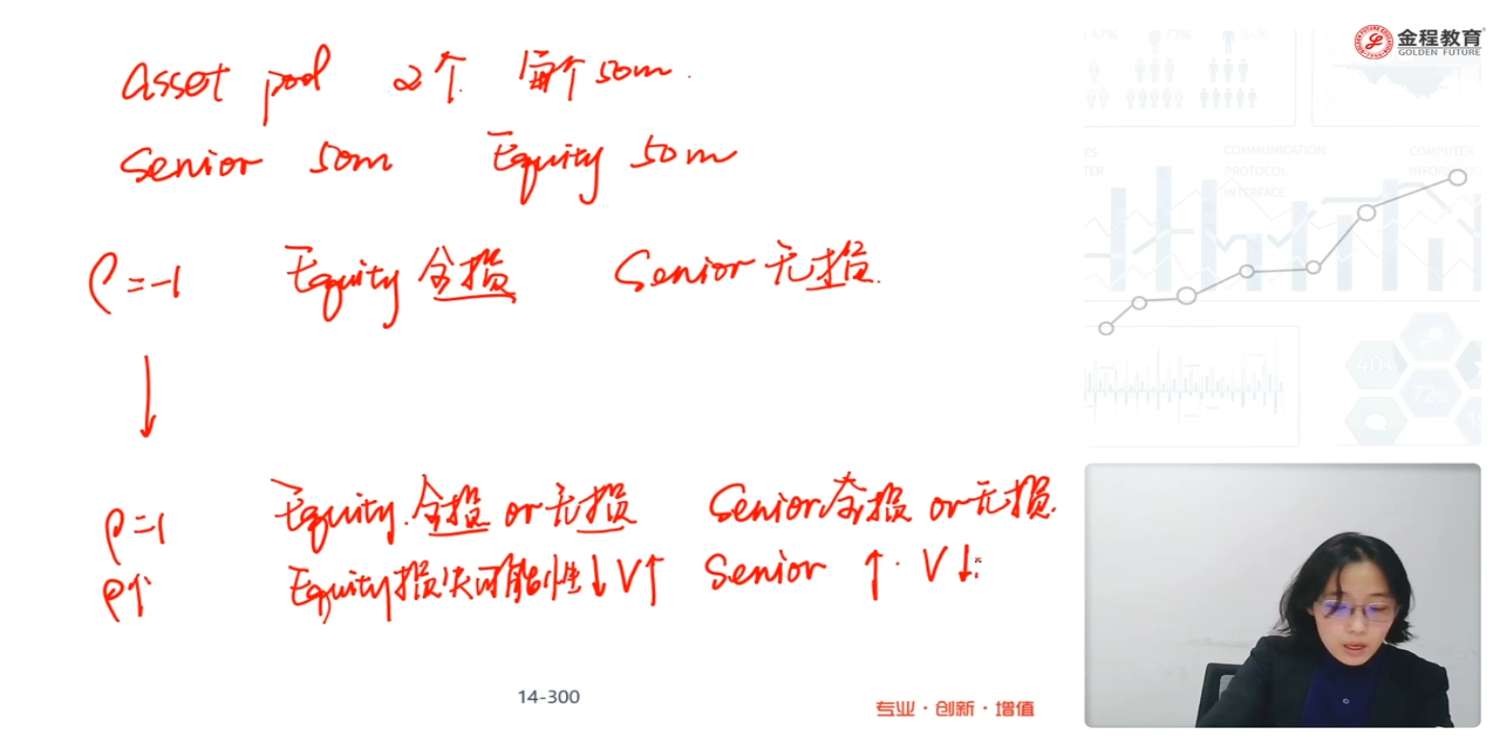 金程教育
GOLDEN FUTURE
Asset pool 2个 每个50m.
Senior 50m Equity 50m
ρ=-1 Equity 全损 Senior 无损.
↓
ρ=1 Equity. 全损 or 无损 Senior 全损 or 无损.
ρ↑ Equity 损失可能性↓ V↑ Senior ↑. V↓
COMMUNICATION
PROTOCOL
INTERFACE
COMPUTER
14-300
专业·创新·增值